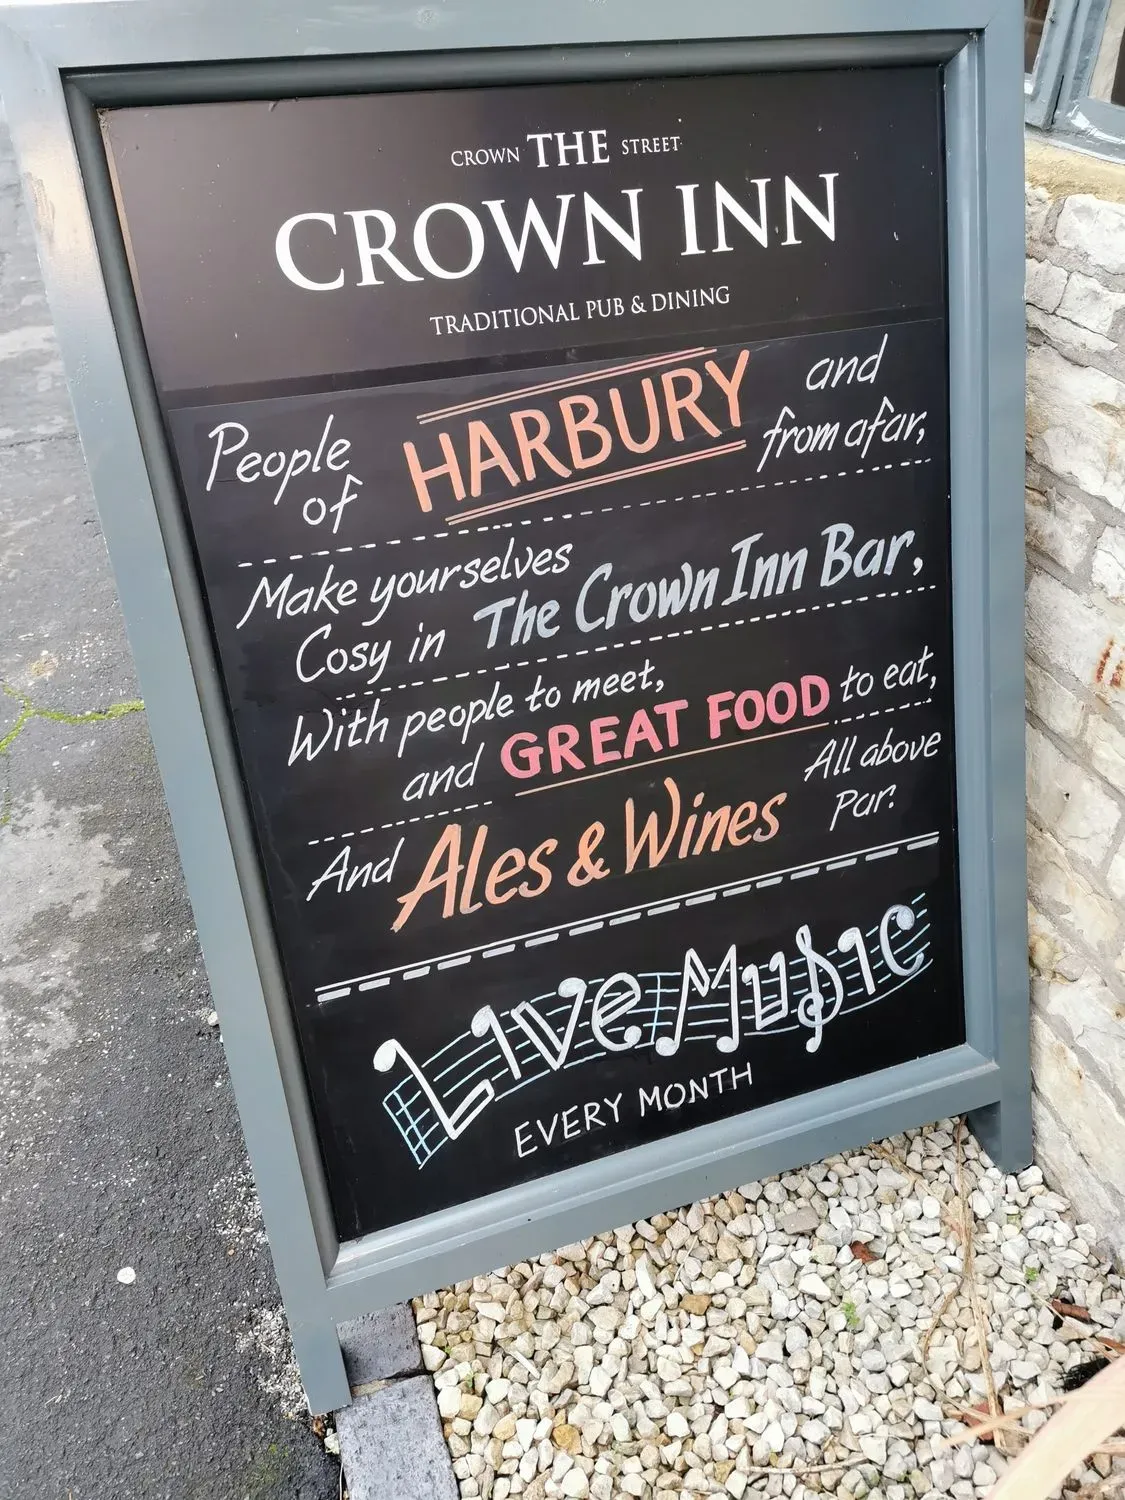 CROWN THE STREET
CROWN INN
TRADITIONAL PUB & DINING
People of HARBURY and from afar,
Make yourselves
Cosy in The Crown Inn Bar,
With people to meet,
and GREAT FOOD to eat,
And Ales & Wines All above Par.
LIVE MUSIC
EVERY MONTH